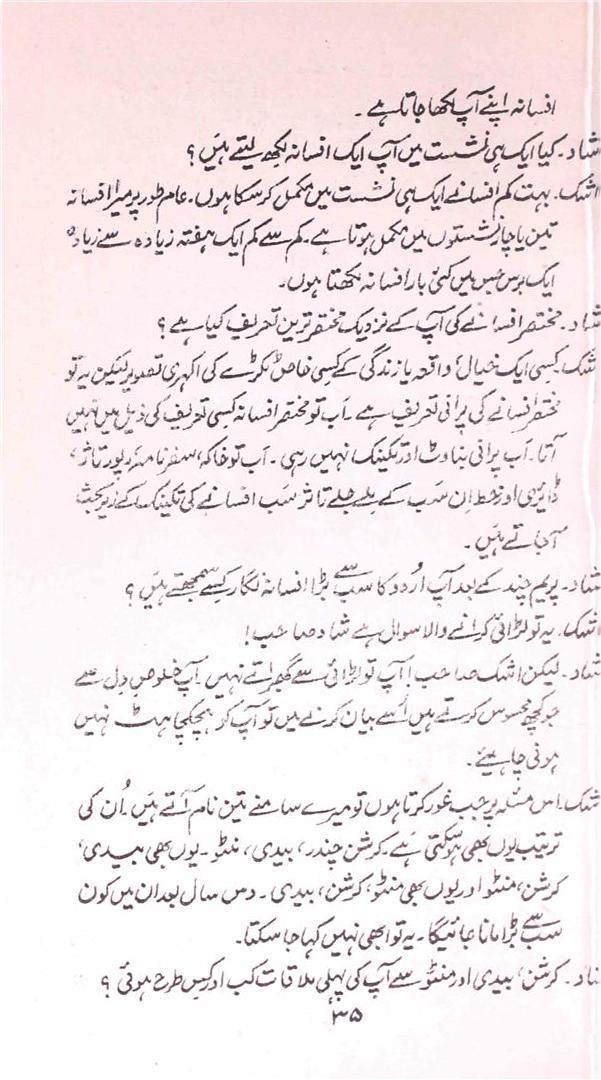 افسانہ اپنے آپ لکھا جاتا ہے۔
شاد۔ کیا ایک ہی نشست میں آپ ایک افسانہ لکھ لیتے ہیں؟
اشک۔ بہت کم افسانے ایک ہی نشست میں مکمل کر سکا ہوں۔ عام طور پر میرا افسانہ
تین یا چار نشستوں میں مکمل ہوتا ہے۔ کم سے کم ایک ہفتہ زیادہ سے زیادہ
ایک برس جس میں کئی بار افسانہ لکھتا ہوں۔
شاد۔ مختصر افسانے کی آپ کے نزدیک مختصر ترین تعریف کیا ہے؟
شک۔ کسی ایک خیال، واقعہ یا زندگی کے کسی خاص ٹکڑے کی اکہری تصویر لیکن یہ تو
مختصر افسانے کی پرانی تعریف ہے۔ اب تو مختصر افسانہ کسی تعریف کی ذیل میں نہیں
آتا۔ اب پرانی بناوٹ اور تکنیک نہیں رہی۔ اب تو خاکہ، سفر نامہ، رپورتاژ،
ڈائری اور خط ان سب کے ملے جلے تاثر سب افسانے کی تکنیک کے زیر بحث
آجاتے ہیں۔
شاد۔ پریم چند کے بعد آپ اُردو کا سب سے بڑا افسانہ نگار کسے سمجھتے ہیں؟
اشک۔ یہ تو لڑائی کرانے والا سوال ہے شاد صاحب!
شاد۔ لیکن اشک صاحب! آپ تو لڑائی سے گھبراتے نہیں۔ آپ خلوص دل سے
جو کچھ محسوس کرتے ہیں اُسے بیان کرنے میں تو آپ کو ہچکچاہٹ نہیں
ہونی چاہیئے۔
شک۔ اس مسئلہ پر جب غور کرتا ہوں تو میرے سامنے تین نام آتے ہیں۔ اُن کی
ترتیب یوں بھی ہو سکتی ہے۔ کرشن چندر، بیدی، منٹو۔ یوں بھی بیدی،
کرشن، منٹو اور یوں بھی منٹو، کرشن، بیدی۔ دس سال بعد ان میں کون
سب سے بڑا مانا جائیگا۔ یہ تو ابھی نہیں کہا جا سکتا۔
شاد۔ کرشن، بیدی اور منٹو سے آپ کی پہلی ملاقات کب اور کس طرح ہوئی؟
۳۵